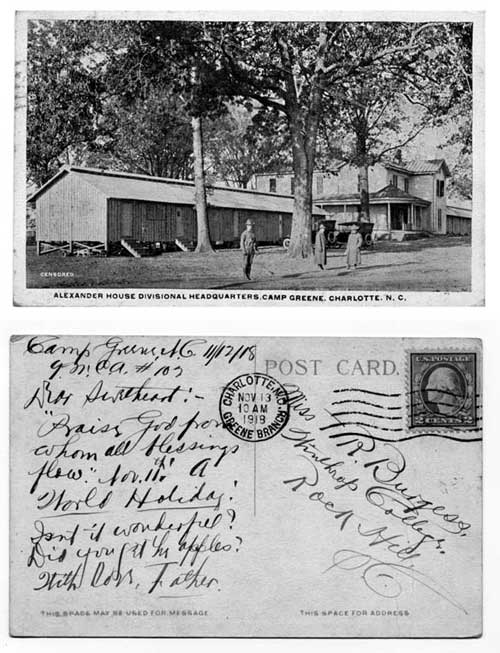 CENSORED
ALEXANDER HOUSE DIVISIONAL HEADQUARTERS, CAMP GREENE, CHARLOTTE, N. C.
Camp Greene, N.C. 11/12/18
Y.M.C.A. # 102
Dear Sweetheart:-
"Praise God from
whom all blessings
flow." Nov. 11th! A
World Holiday!
Isn't it wonderful?
Did you get the apples?
With love, Father.
THIS SPACE MAY BE USED FOR MESSAGE
POST CARD.
CHARLOTTE, N.C.
NOV 13
10 AM
1918
GREENE BRANCH
U.S. POSTAGE
2 CENTS 2
Miss R. Burgess,
Winthrop College,
Rock Hill,
S.C.
THIS SPACE FOR ADDRESS